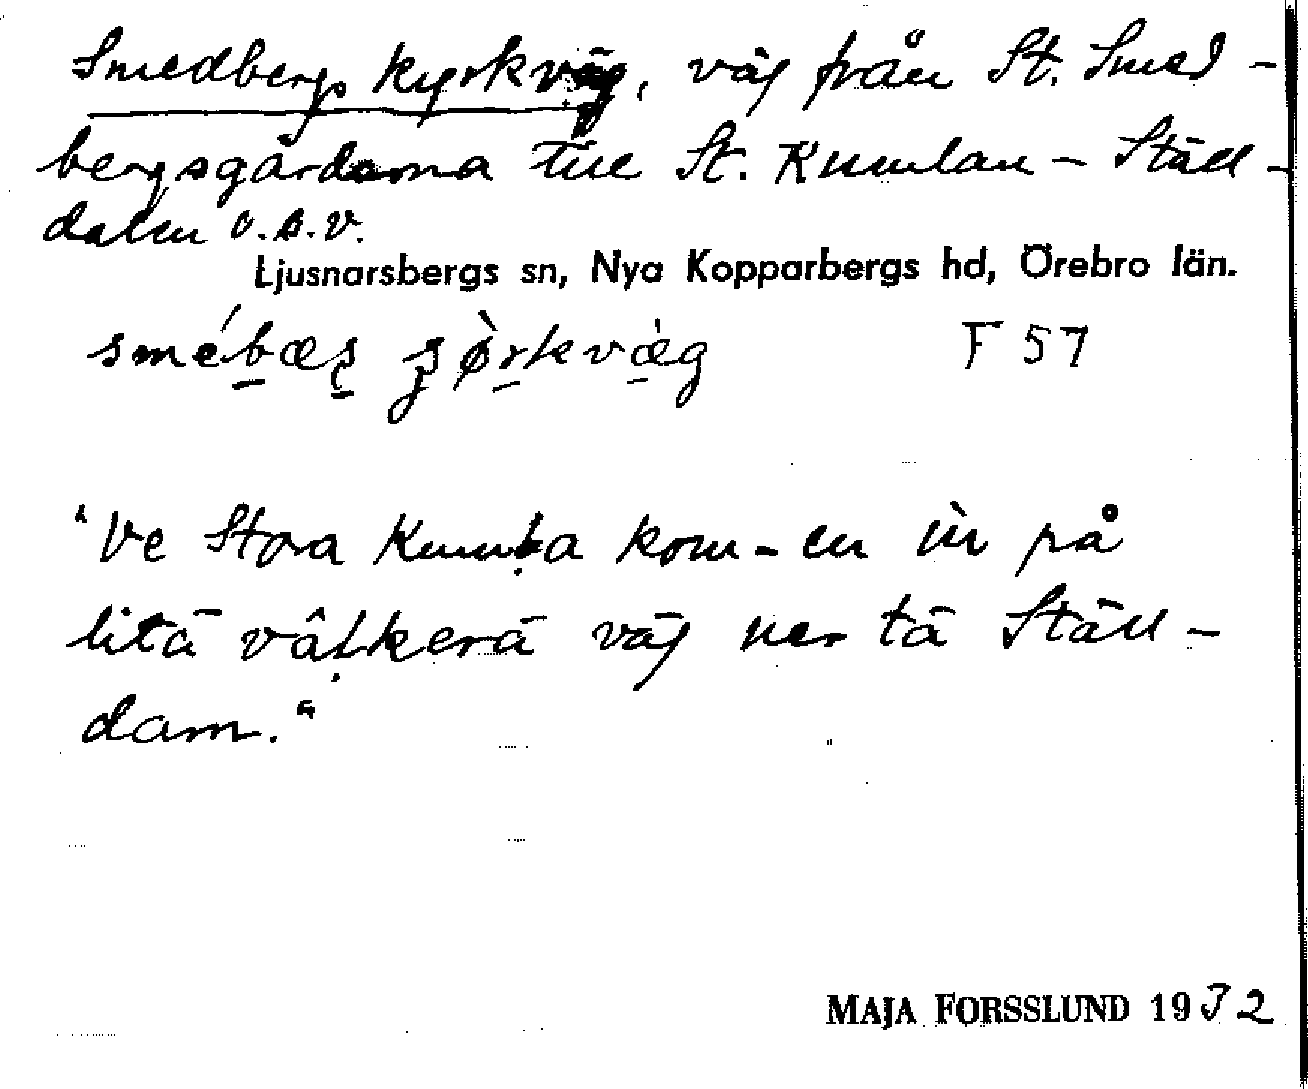 Smedbergs kyrkväg, väg från St. Smed-
bergsgårdarna till St. Kumlan - Ställ-
dalen o.s.v.
Ljusnarsbergs sn, Nya Kopparbergs hd, Örebro län.
F 57
"Ve Stora Kumla kom-en in på
litä vâlkerä väg ner tä Ställ-
dam."
MAJA FORSSLUND 1932